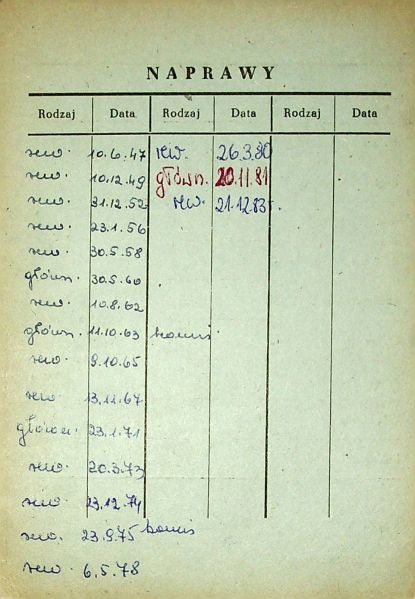 NAPRAWY
Rodzaj Data Rodzaj Data Rodzaj Data
rew. 10.6.47 rew. 26.3.80
rew. 10.12.49 główn. 20.11.81
rew. 31.12.52 rew. 21.12.83r.
rew. 23.1.56
rew. 30.5.58
główn. 30.5.60
rew. 10.8.62
główn. 11.10.63 komis
rew. 9.10.65
rew. 13.11.67
główn. 23.1.71
rew. 20.3.73
rew. 23.12.74
rew. 23.9.75 komis
rew. 6.5.78